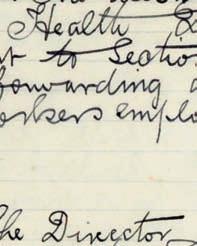 Health
to Section
forwarding a
workers emplo
The Director